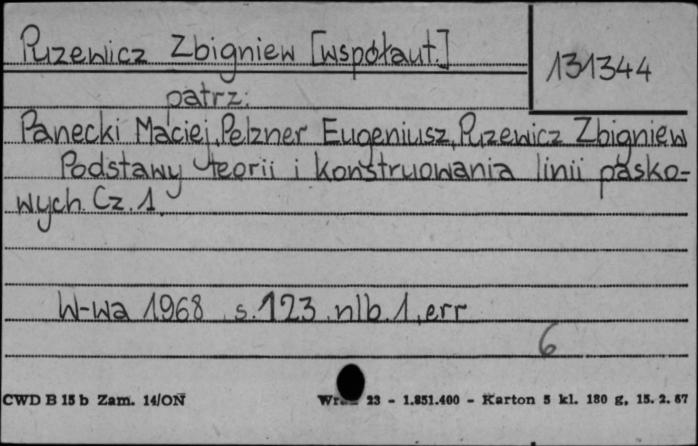 Puzewicz Zbigniew [współaut.]
131344
patrz:
Panecki Maciej, Pelzner Eugeniusz, Puzewicz Zbigniew
Podstawy teorii i konstruowania linii pasko-
wych. Cz. 1.
W-wa 1968 s. 123 nlb. 1, err
6
CWD B 15 b Zam. 14/ON 23 - 1.851.400 - Karton 5 kl. 180 g, 15. 2. 67